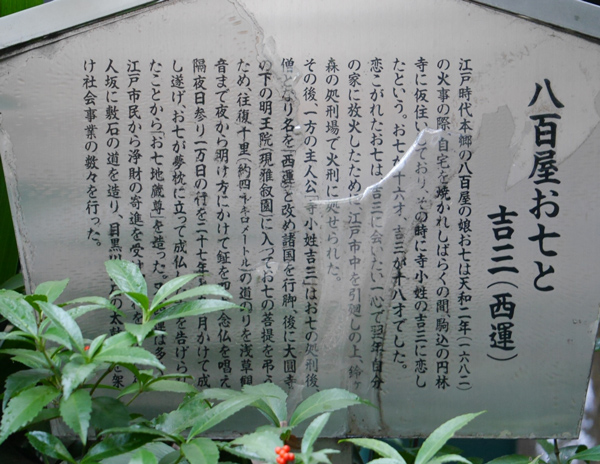 八百屋お七と
吉三(西運)
江戸時代本郷の八百屋の娘お七は天和二年(一六八二)
の火事の際、自宅を焼かれしばらくの間、駒込の円林
寺に仮住いしており、その時に寺小姓の吉三に恋し
たという。お七が十六才、吉三が十八才でした。
恋こがれたお七は、吉三に会いたい一心で翌年、自分
の家に放火したために、江戸市中を引廻しの上、鈴ヶ
森の処刑場で火刑に処せられた。
その後、一方の主人公、寺小姓吉三はお七の処刑後、
僧となり名を「西運」と改め諸国を行脚、後に大圓寺
の下の明王院(現雅叙園)に入ってお七の菩提を弔う
ため、往復十里(約四十キロメートル)の道のりを浅草観
音まで夜から明け方にかけて鉦を叩き念仏を唱え
隔夜日参り一万日の行を二十七年 月かけて成
し遂げ、お七が夢枕に立って成仏 を告げら
たことから「お七地蔵尊」を造った。 は多
江戸市民から浄財の寄進を受け を
人坂に敷石の道を造り、目黒川に の太鼓 を架
け社会事業の数々を行った。